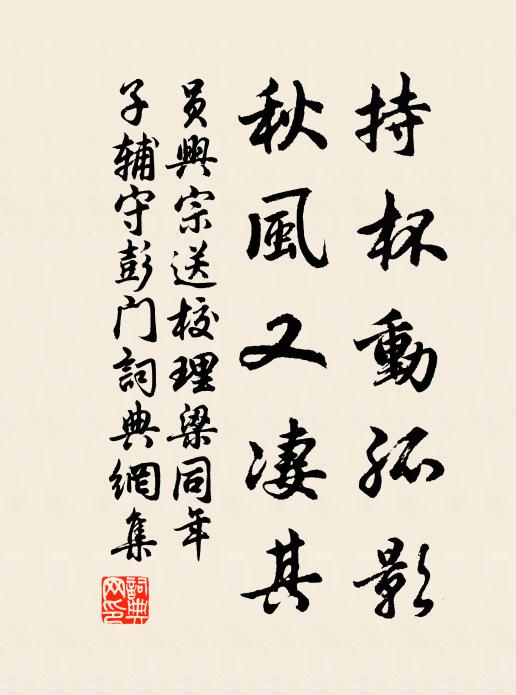 持杯動孤影
秋風又凄其
員興宗送校理梁同年
子輔守彭门詞典網集
詞典网印